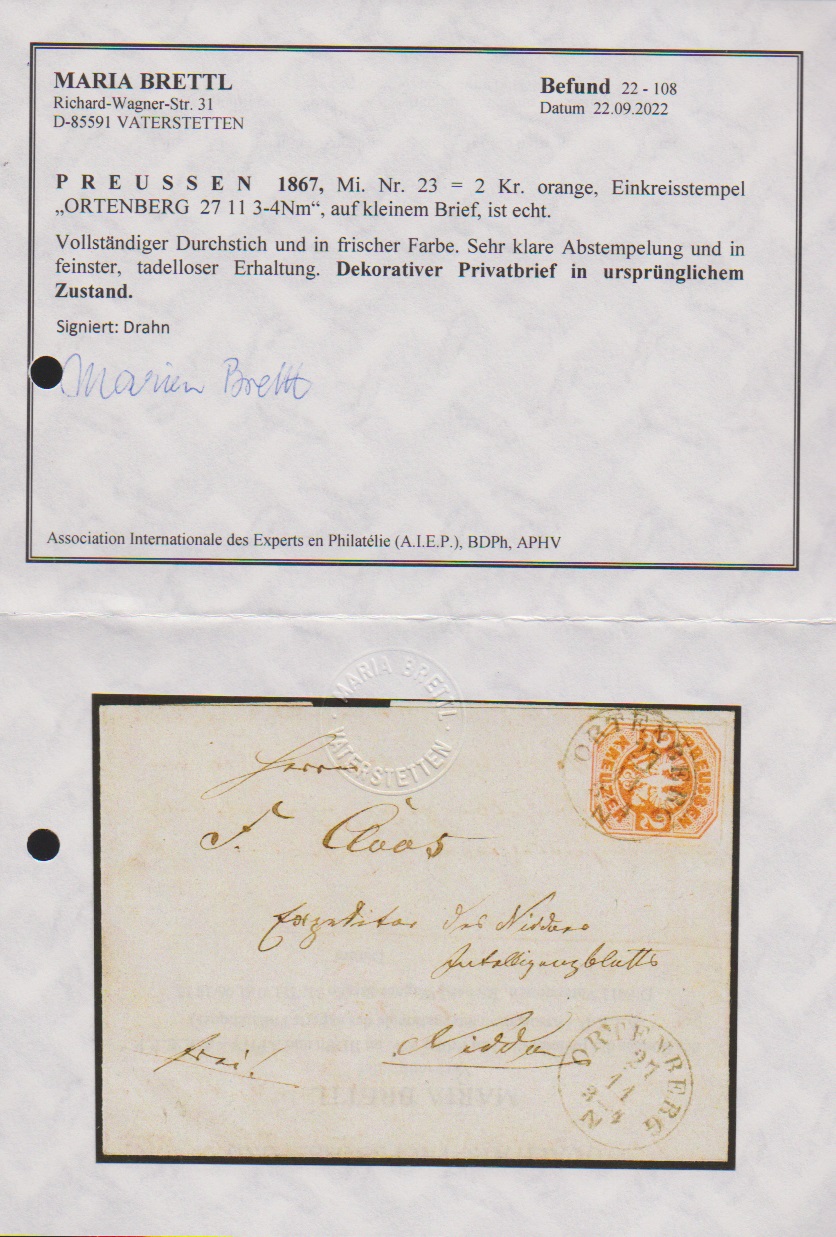 MARIA BRETTL
Richard-Wagner-Str. 31
D-85591 VATERSTETTEN
Befund 22 - 108
Datum 22.09.2022
PREUSSEN 1867, Mi. Nr. 23 = 2 Kr. orange, Einkreisstempel
„ORTENBERG 27 11 3-4Nm“, auf kleinem Brief, ist echt.
Vollständiger Durchstich und in frischer Farbe. Sehr klare Abstempelung und in
feinster, tadelloser Erhaltung. Dekorativer Privatbrief in ursprünglichem
Zustand.
Signiert: Drahn
Marien Brettl
Association Internationale des Experts en Philatélie (A.I.E.P.), BDPh, APHV
MARIA BRETTL
VATERSTETTEN
ORTENBERG
27
PREUSSEN
2
KREUZER
2
Herrn
F. Cloos
Expeditor des Niddaer
Intelligenzblatts
Nidda
frei!
ORTENBERG
27
11
3-4
N